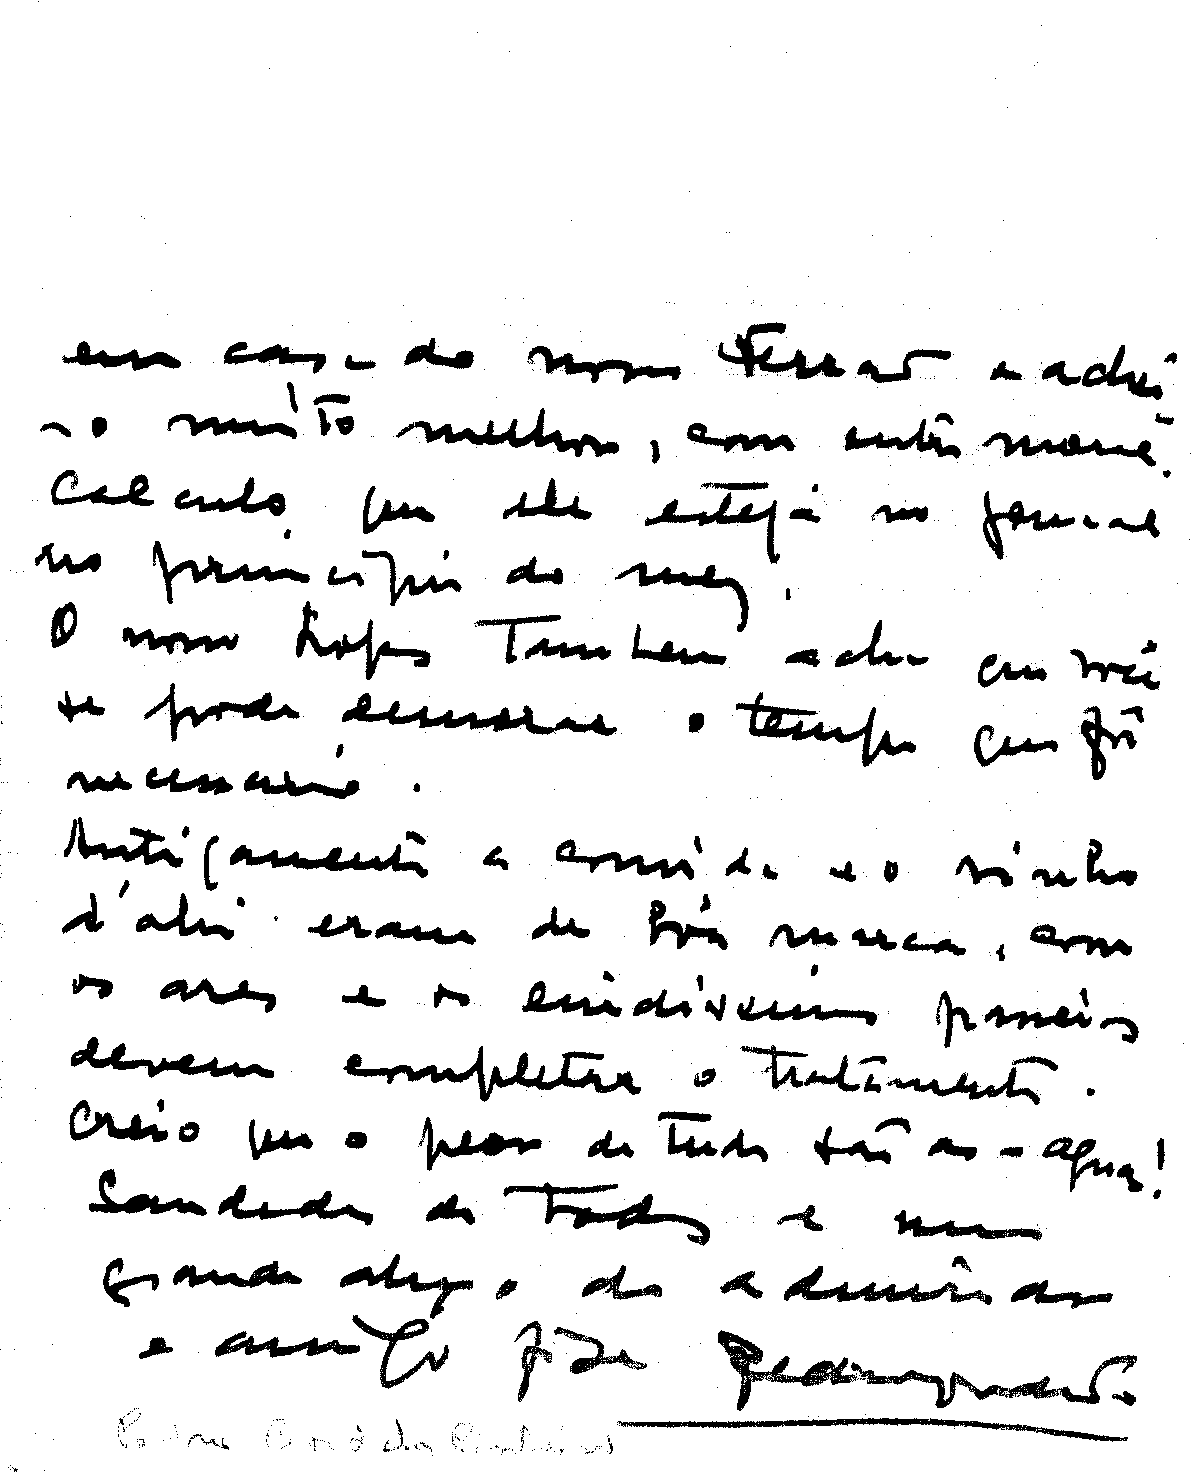 em casa do nosso Ferrão e achei
-o muito melhor, com outra moral.
Calculo que ele esteja no jornal
no principio do mez.
O nosso Lopes Tambem acha que você
se pode demorar o tempo que fôr
necessario.
Antigamente a comida e o vinho
d'ahi eram de bôa marca, com
os ares e os lindissimos passeios
devem completar o tratamento.
Creio que o peor de tudo são as - agua!
Saudades de Todos e um
grande abraço do admirador
e amigo fixe